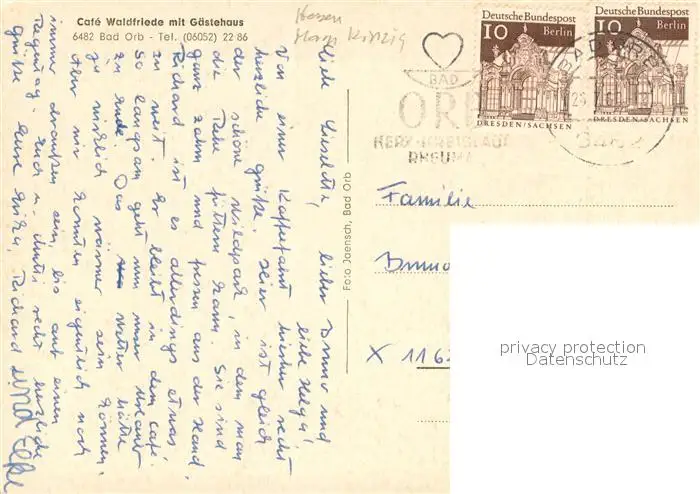 Café Waldfriede mit Gästehaus
6482 Bad Orb - Tel. (06052) 22 86
Hessen
Deutsche Bundespost
10 Berlin
DRESDEN/SACHSEN
Deutsche Bundespost
10 Berlin
DRESDEN/SACHSEN
BAD
ORB
HERZ-KREISLAUF
RHEUMA
BAD ORB
Liebe Liselotte, lieber Bruno und
liebe Helga!
Von einer Kaffeefahrt hierher recht
herzliche Grüße. Hier ist gleich
der schöne Wildpark, in dem man
die Rehe füttern kann. Sie sind
ganz zahm und fressen aus der Hand.
Richard ist es allerdings etwas
zu weit. Er bleibt in dem Café.
So langsam geht nun unser Urlaub
zu Ende. Das Wetter hätte
ja wirklich wärmer sein können.
Aber wir konnten eigentlich noch
immer draußen sein, bis auf einen
Regentag. Euch u. Mutti recht herzliche
Grüße Eure Erika, Richard und Elke
Foto Jaensch, Bad Orb
Familie
Bruno
X 116
privacy protection
Datenschutz